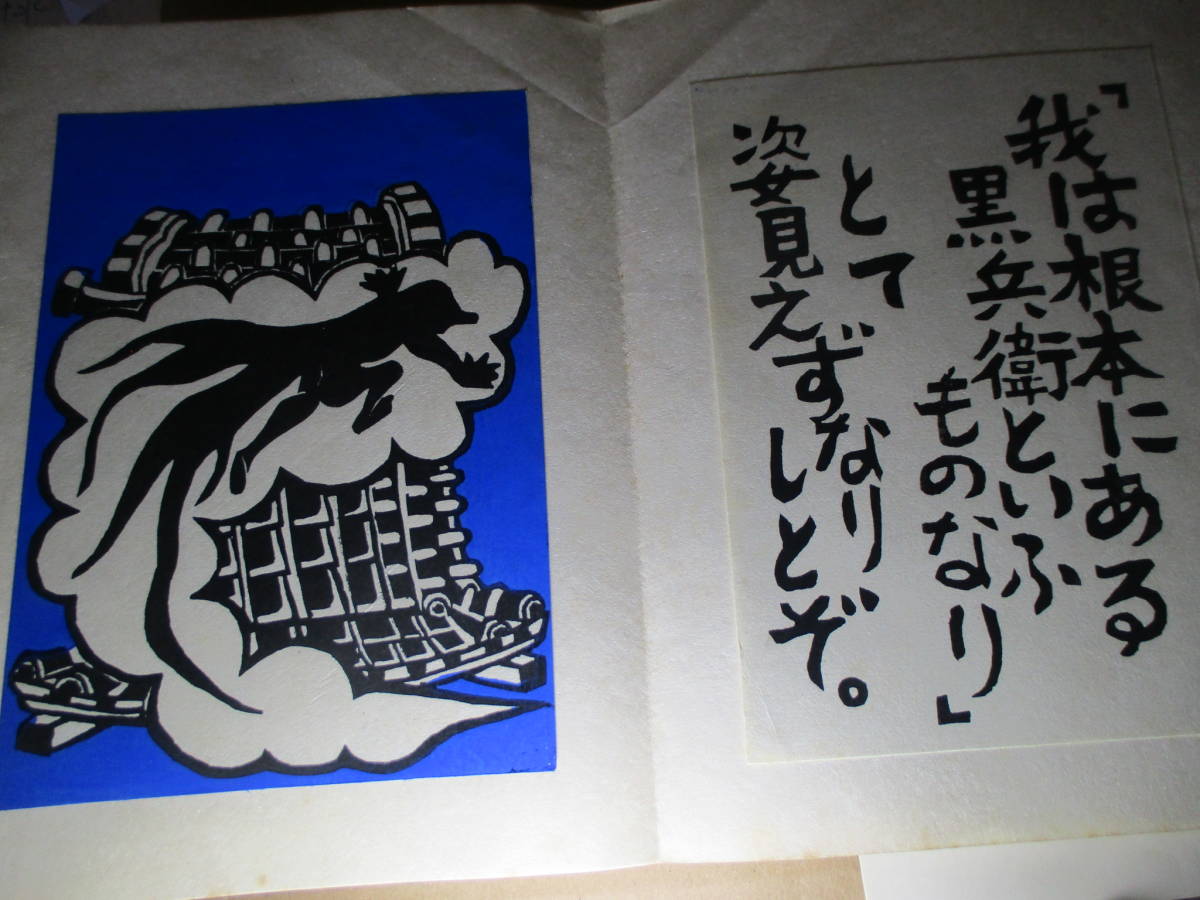 「我は根本にある
黒兵衛といふ
ものなり」
とて、ずなり、
姿見えずなり、
しとぞ。